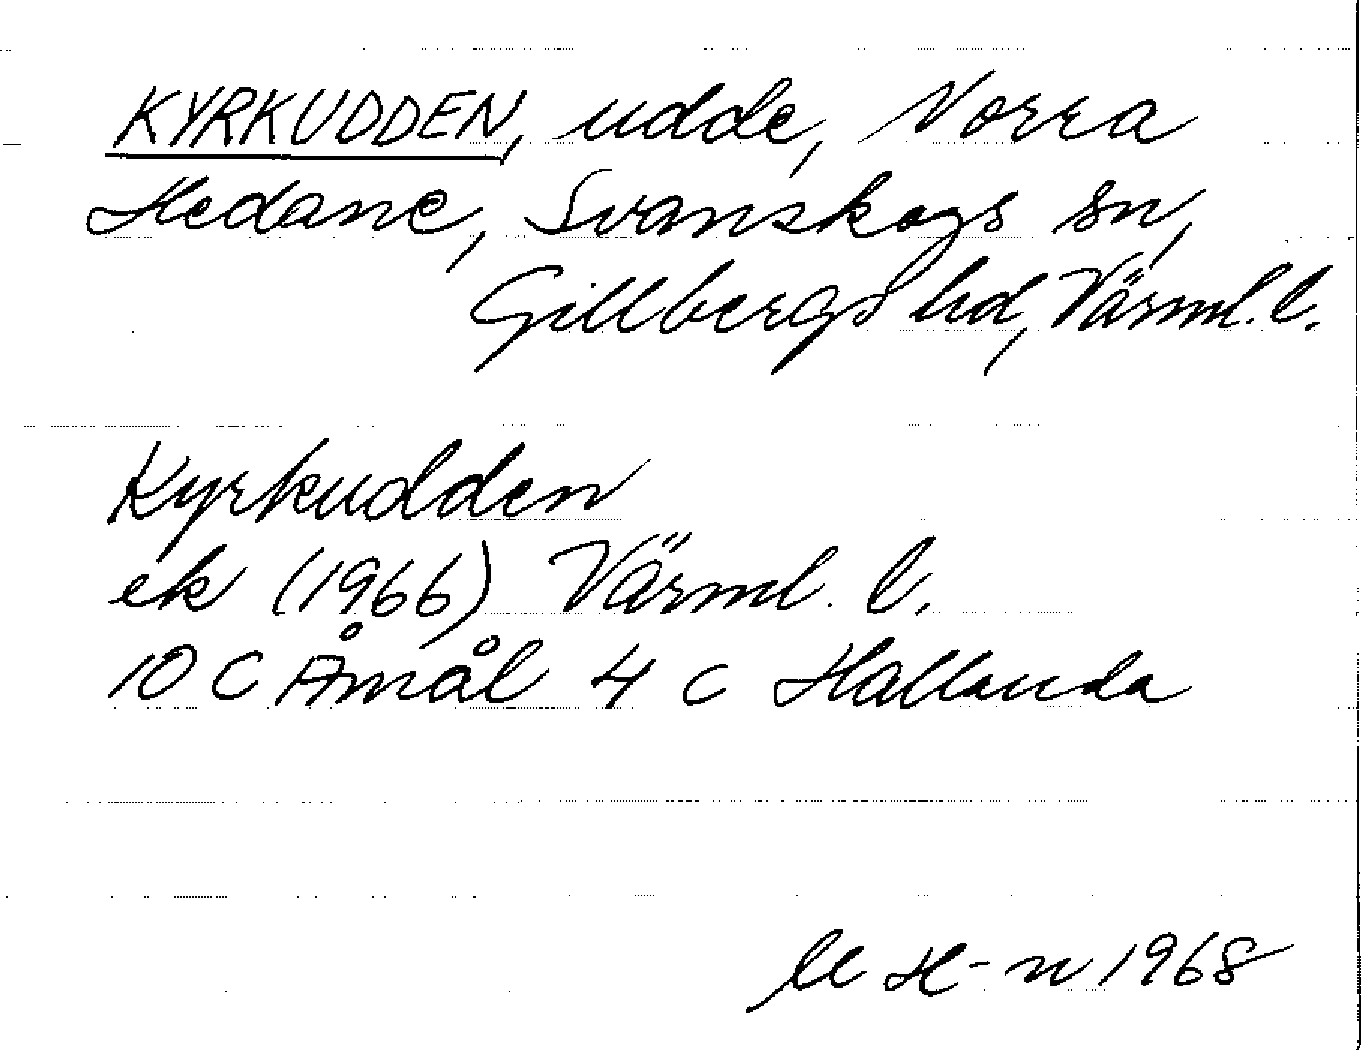 KYRKUDDEN, udde, Norra
Hedane, Svanskogs sn,
Gillbergs hd, Värml. l.
Kyrkudden
ek (1966) Värml. l.
10 C Åmål 4 c Hallanda
H-n 1968